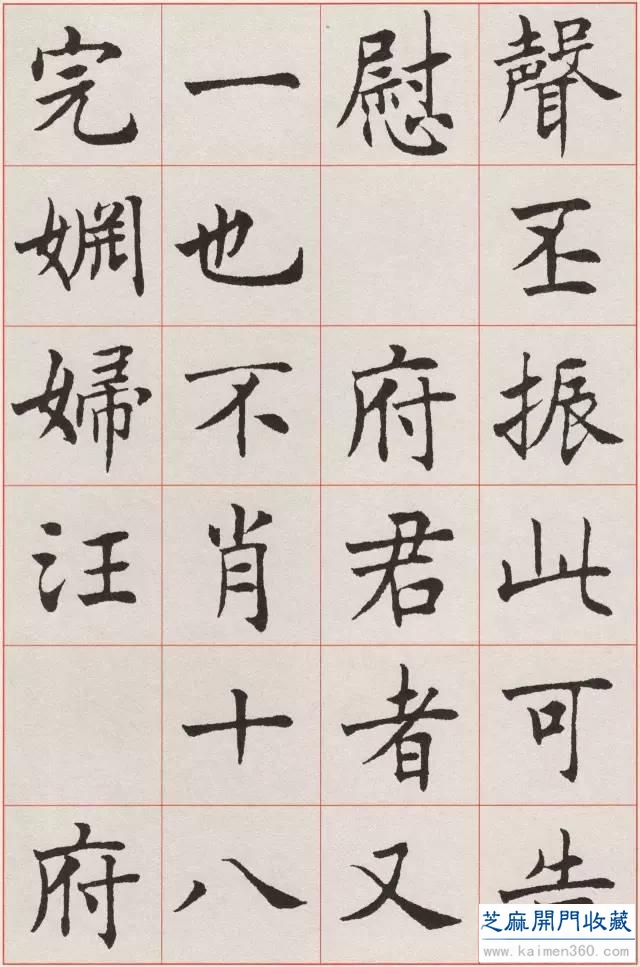 聲丕振此可告
慰 府君者又
一也不肖十八
完婣婦汪 府
芝麻開門收藏
www.kaimen360.com